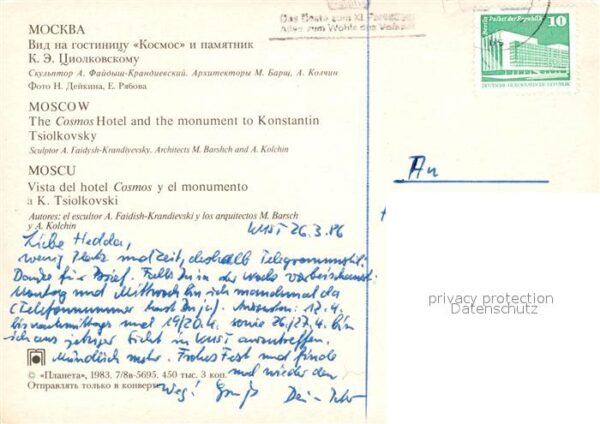 МОСКВА
Вид на гостиницу «Космос» и памятник
К. Э. Циолковскому
Скульптор А. Файдыш-Крандиевский. Архитекторы М. Барщ, А. Колчин
Фото Н. Дейкина, Е. Рябова
MOSCOW
The Cosmos Hotel and the monument to Konstantin
Tsiolkovsky
Sculptor A. Faidysh-Krandiyevsky. Architects M. Barshch and A. Kolchin
MOSCU
Vista del hotel Cosmos y el monumento
a K. Tsiolkovski
Autores: el escultor A. Faidish-Krandievski y los arquitectos M. Barsch
y A. Kolchin
26.3.86
Liebe Hedda,
wenig Platz und Zeit, deshalb Telegrammstil:
Danke für Brief. Falls Du in der Woche vorbeikommst:
Montag und Mittwoch bin ich manchmal da
(Telefonnummer hast Du ja). Ansonsten: 12.4.
bis nachmittags und 19/20.4. sowie 26./27.4. bin
ich aus jetziger Sicht in anzutreffen.
Mündlich mehr. Frohes Fest und finde
mal wieder den
Weg! Gruß Dein
© «Планета», 1983. 7/8в-5695. 450 тыс. 3 коп.
Отправлять только в конверте
Das Beste zum XI. Parteitag
Alles zum Wohle des Volkes
Berlin, Palast der Republik
10
DEUTSCHE DEMOKRATISCHE REPUBLIK
An
privacy protection
Datenschutz